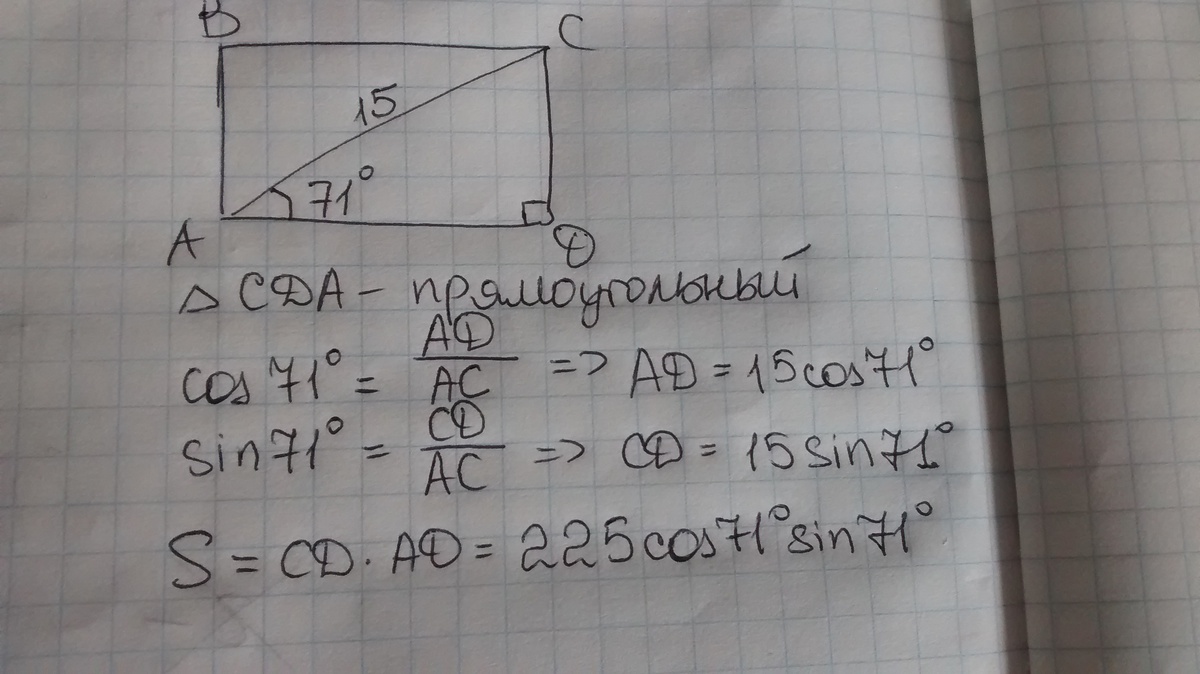 B C
15
71°
A D
△ CDA - прямоугольный
cos 71° = AD/AC => AD = 15cos71°
sin71° = CD/AC => CD = 15sin71°
S = CD · AD = 225cos71°sin71°